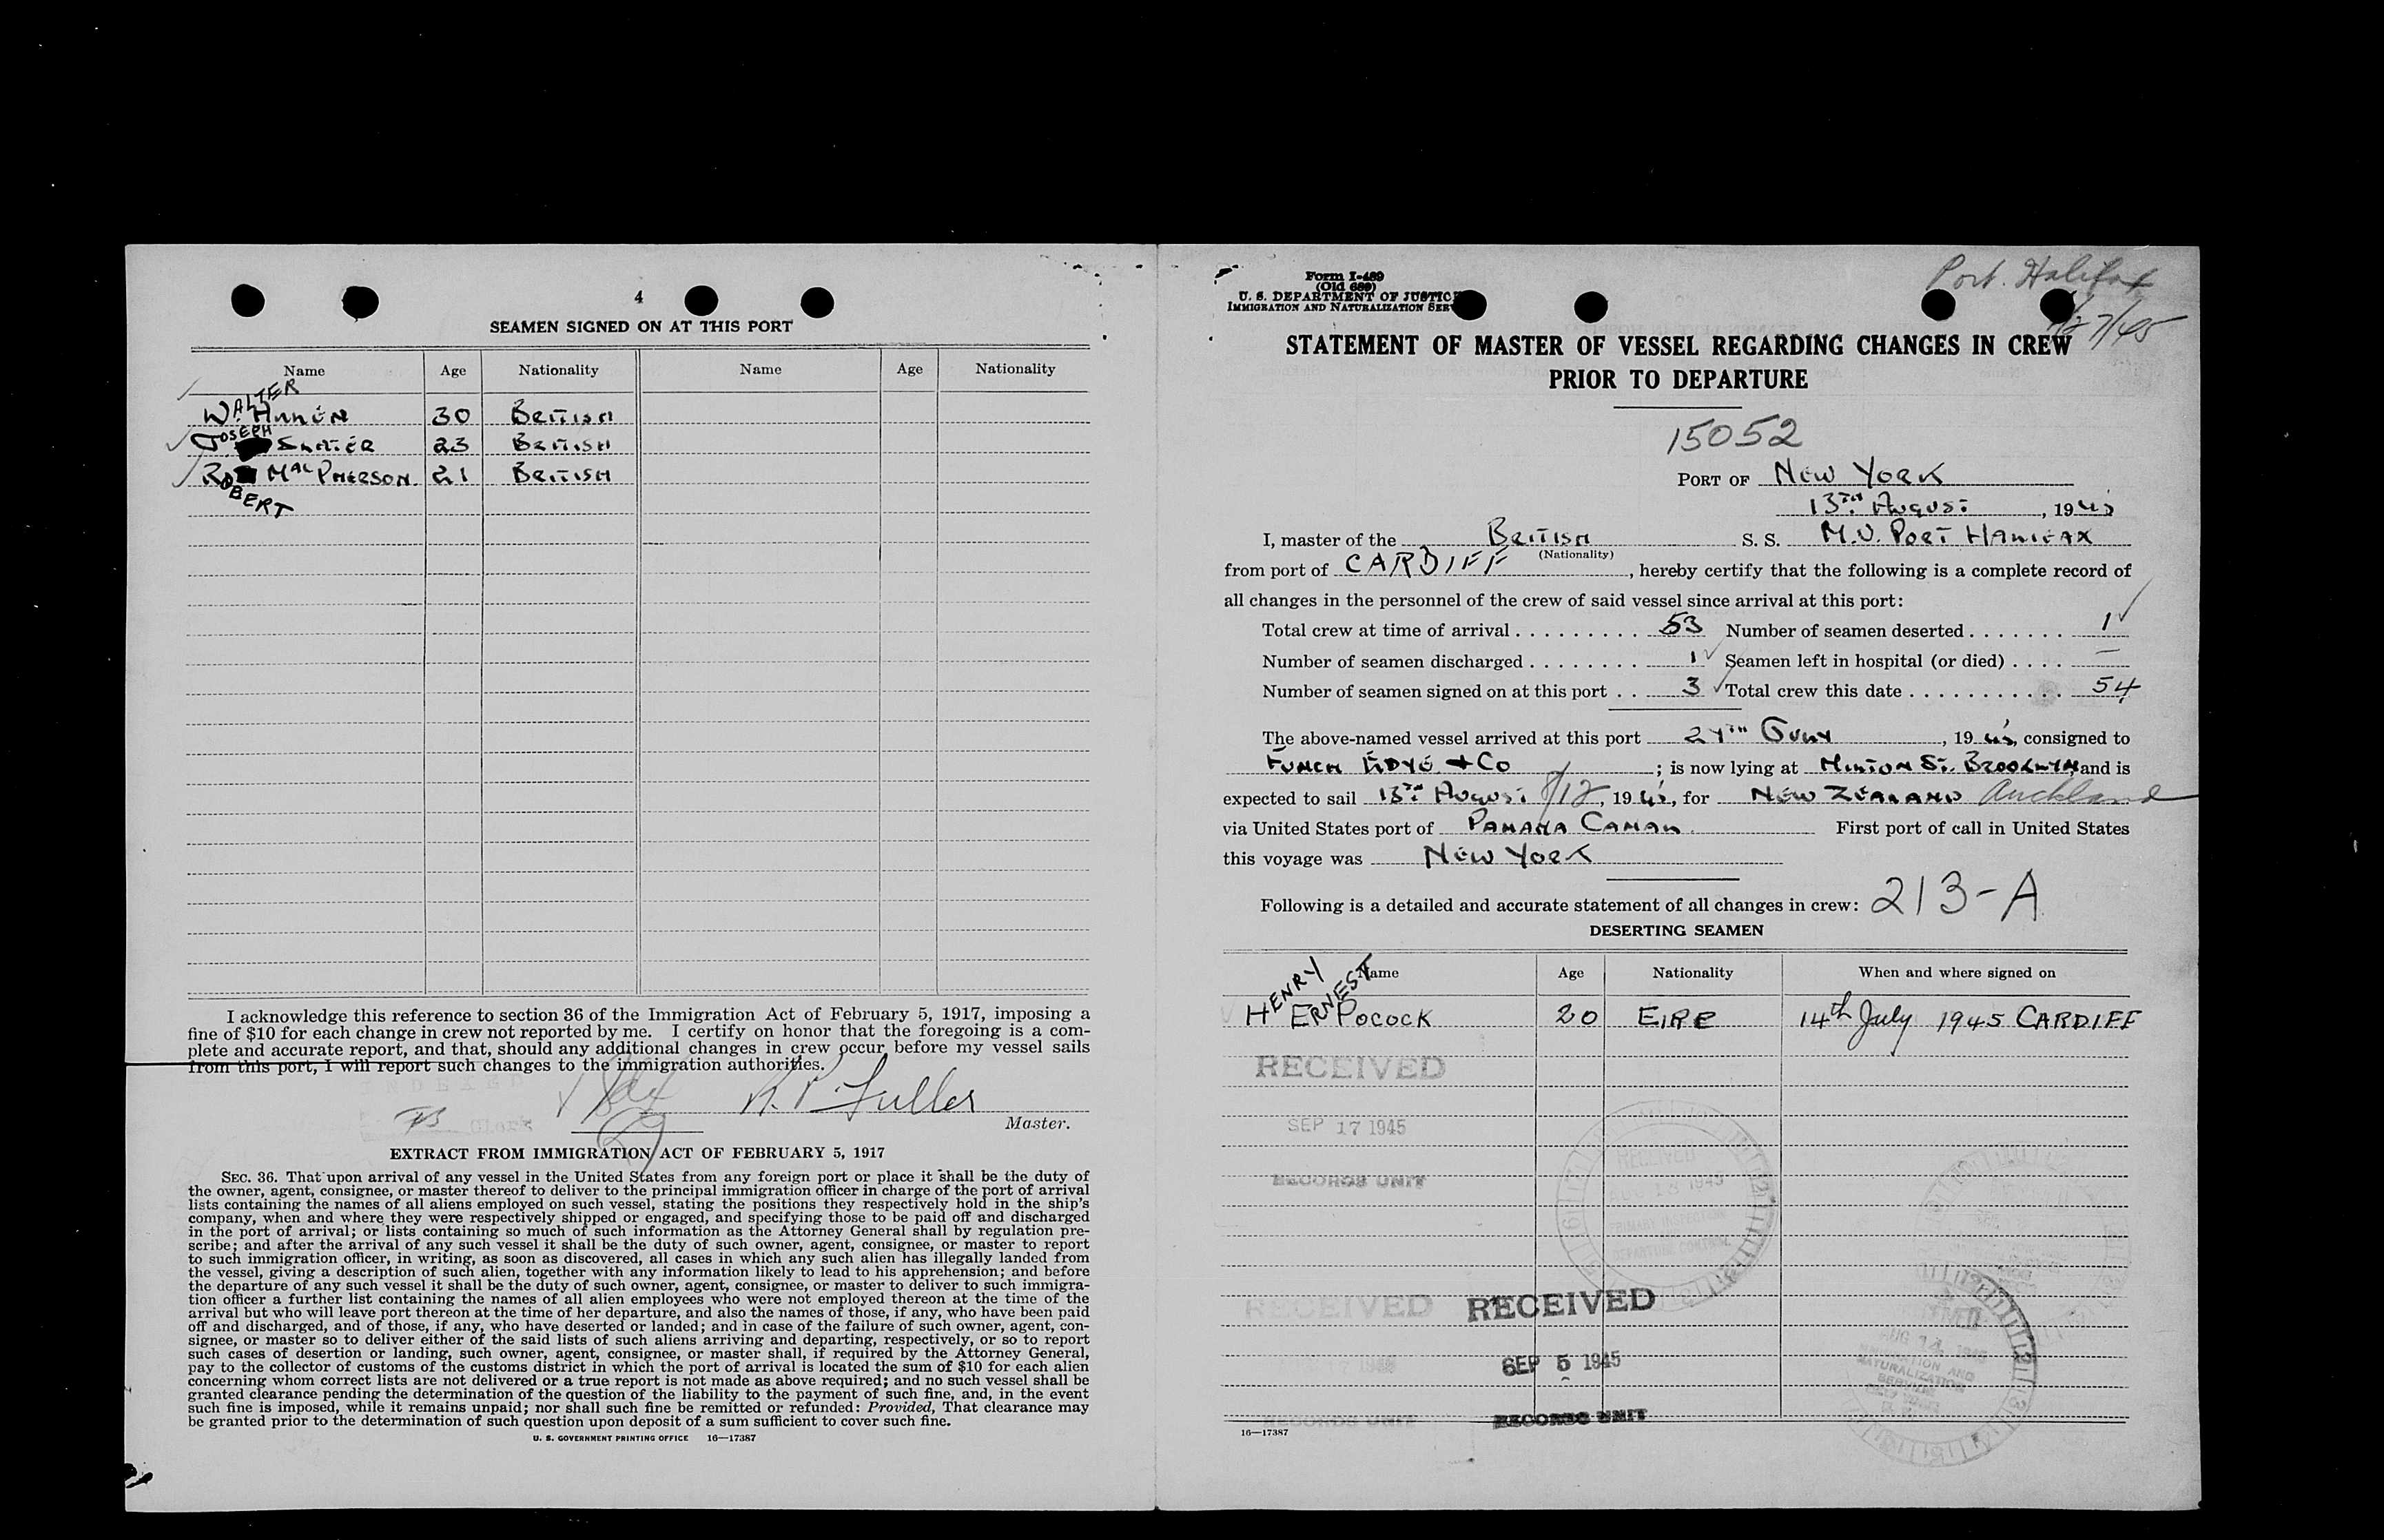 4
SEAMEN SIGNED ON AT THIS PORT
Name Age Nationality Name Age Nationality
WALTER
30 BRITISH
JOSEPH
23 BRITISH
ROBERT MAC PHERSON 21 BRITISH
I acknowledge this reference to section 36 of the Immigration Act of February 5, 1917, imposing a
fine of $10 for each change in crew not reported by me. I certify on honor that the foregoing is a com-
plete and accurate report, and that, should any additional changes in crew occur before my vessel sails
from this port, I will report such changes to the immigration authorities.
INDEXED
Clerk
Fuller
Master.
EXTRACT FROM IMMIGRATION ACT OF FEBRUARY 5, 1917
SEC. 36. That upon arrival of any vessel in the United States from any foreign port or place it shall be the duty of
the owner, agent, consignee, or master thereof to deliver to the principal immigration officer in charge of the port of arrival
lists containing the names of all aliens employed on such vessel, stating the positions they respectively hold in the ship's
company, when and where they were respectively shipped or engaged, and specifying those to be paid off and discharged
in the port of arrival; or lists containing so much of such information as the Attorney General shall by regulation pre-
scribe; and after the arrival of any such vessel it shall be the duty of such owner, agent, consignee, or master to report
to such immigration officer, in writing, as soon as discovered, all cases in which any such alien has illegally landed from
the vessel, giving a description of such alien, together with any information likely to lead to his apprehension; and before
the departure of any such vessel it shall be the duty of such owner, agent, consignee, or master to deliver to such immigra-
tion officer a further list containing the names of all alien employees who were not employed thereon at the time of the
arrival but who will leave port thereon at the time of her departure, and also the names of those, if any, who have been paid
off and discharged, and of those, if any, who have deserted or landed; and in case of the failure of such owner, agent, con-
signee, or master so to deliver either of the said lists of such aliens arriving and departing, respectively, or so to report
such cases of desertion or landing, such owner, agent, consignee, or master shall, if required by the Attorney General,
pay to the collector of customs of the customs district in which the port of arrival is located the sum of $10 for each alien
concerning whom correct lists are not delivered or a true report is not made as above required; and no such vessel shall be
granted clearance pending the determination of the question of the liability to the payment of such fine, and, in the event
such fine is imposed, while it remains unpaid; nor shall such fine be remitted or refunded: Provided, That clearance may
be granted prior to the determination of such question upon deposit of a sum sufficient to cover such fine.
U. S. GOVERNMENT PRINTING OFFICE 16—17387
Form I-489
(Old 689)
U. S. DEPARTMENT OF JUSTIC
IMMIGRATION AND NATURALIZATION SER
Port. Halifax
7/27/45
STATEMENT OF MASTER OF VESSEL REGARDING CHANGES IN CREW
PRIOR TO DEPARTURE
15052
PORT OF NEW YORK
13TH AUGUST, 1945
I, master of the BRITISH S. S. M.V. PORT HALIFAX
(Nationality)
from port of CARDIFF, hereby certify that the following is a complete record of
all changes in the personnel of the crew of said vessel since arrival at this port:
Total crew at time of arrival . . . . . . . . . 53 Number of seamen deserted . . . . . . . 1
Number of seamen discharged . . . . . . . . 1 Seamen left in hospital (or died) . . . . —
Number of seamen signed on at this port . . 3 Total crew this date . . . . . . . . . . . 54
The above-named vessel arrived at this port 27TH JULY, 1945, consigned to
FUNCH EDYE & CO; is now lying at ST. BROOKLYN, and is
expected to sail 13TH AUGUST 8/12, 1945, for NEW ZEALAND Auckland
via United States port of PANAMA CANAL. First port of call in United States
this voyage was NEW YORK
Following is a detailed and accurate statement of all changes in crew: 213-A
DESERTING SEAMEN
Name Age Nationality When and where signed on
HENRY ERNEST POCOCK 20 EIRE 14th July 1945 CARDIFF
RECEIVED
SEP 17 1945
RECORDS UNIT
RECEIVED
AUG 13 1945
PRIMARY INSPECTION
DEPARTURE CONTROL
RECEIVED RECEIVED
SEP 5 1945
RECORDS UNIT RECORDS UNIT
AUG 14 1945
IMMIGRATION AND
NATURALIZATION
SERVICE
16—17387